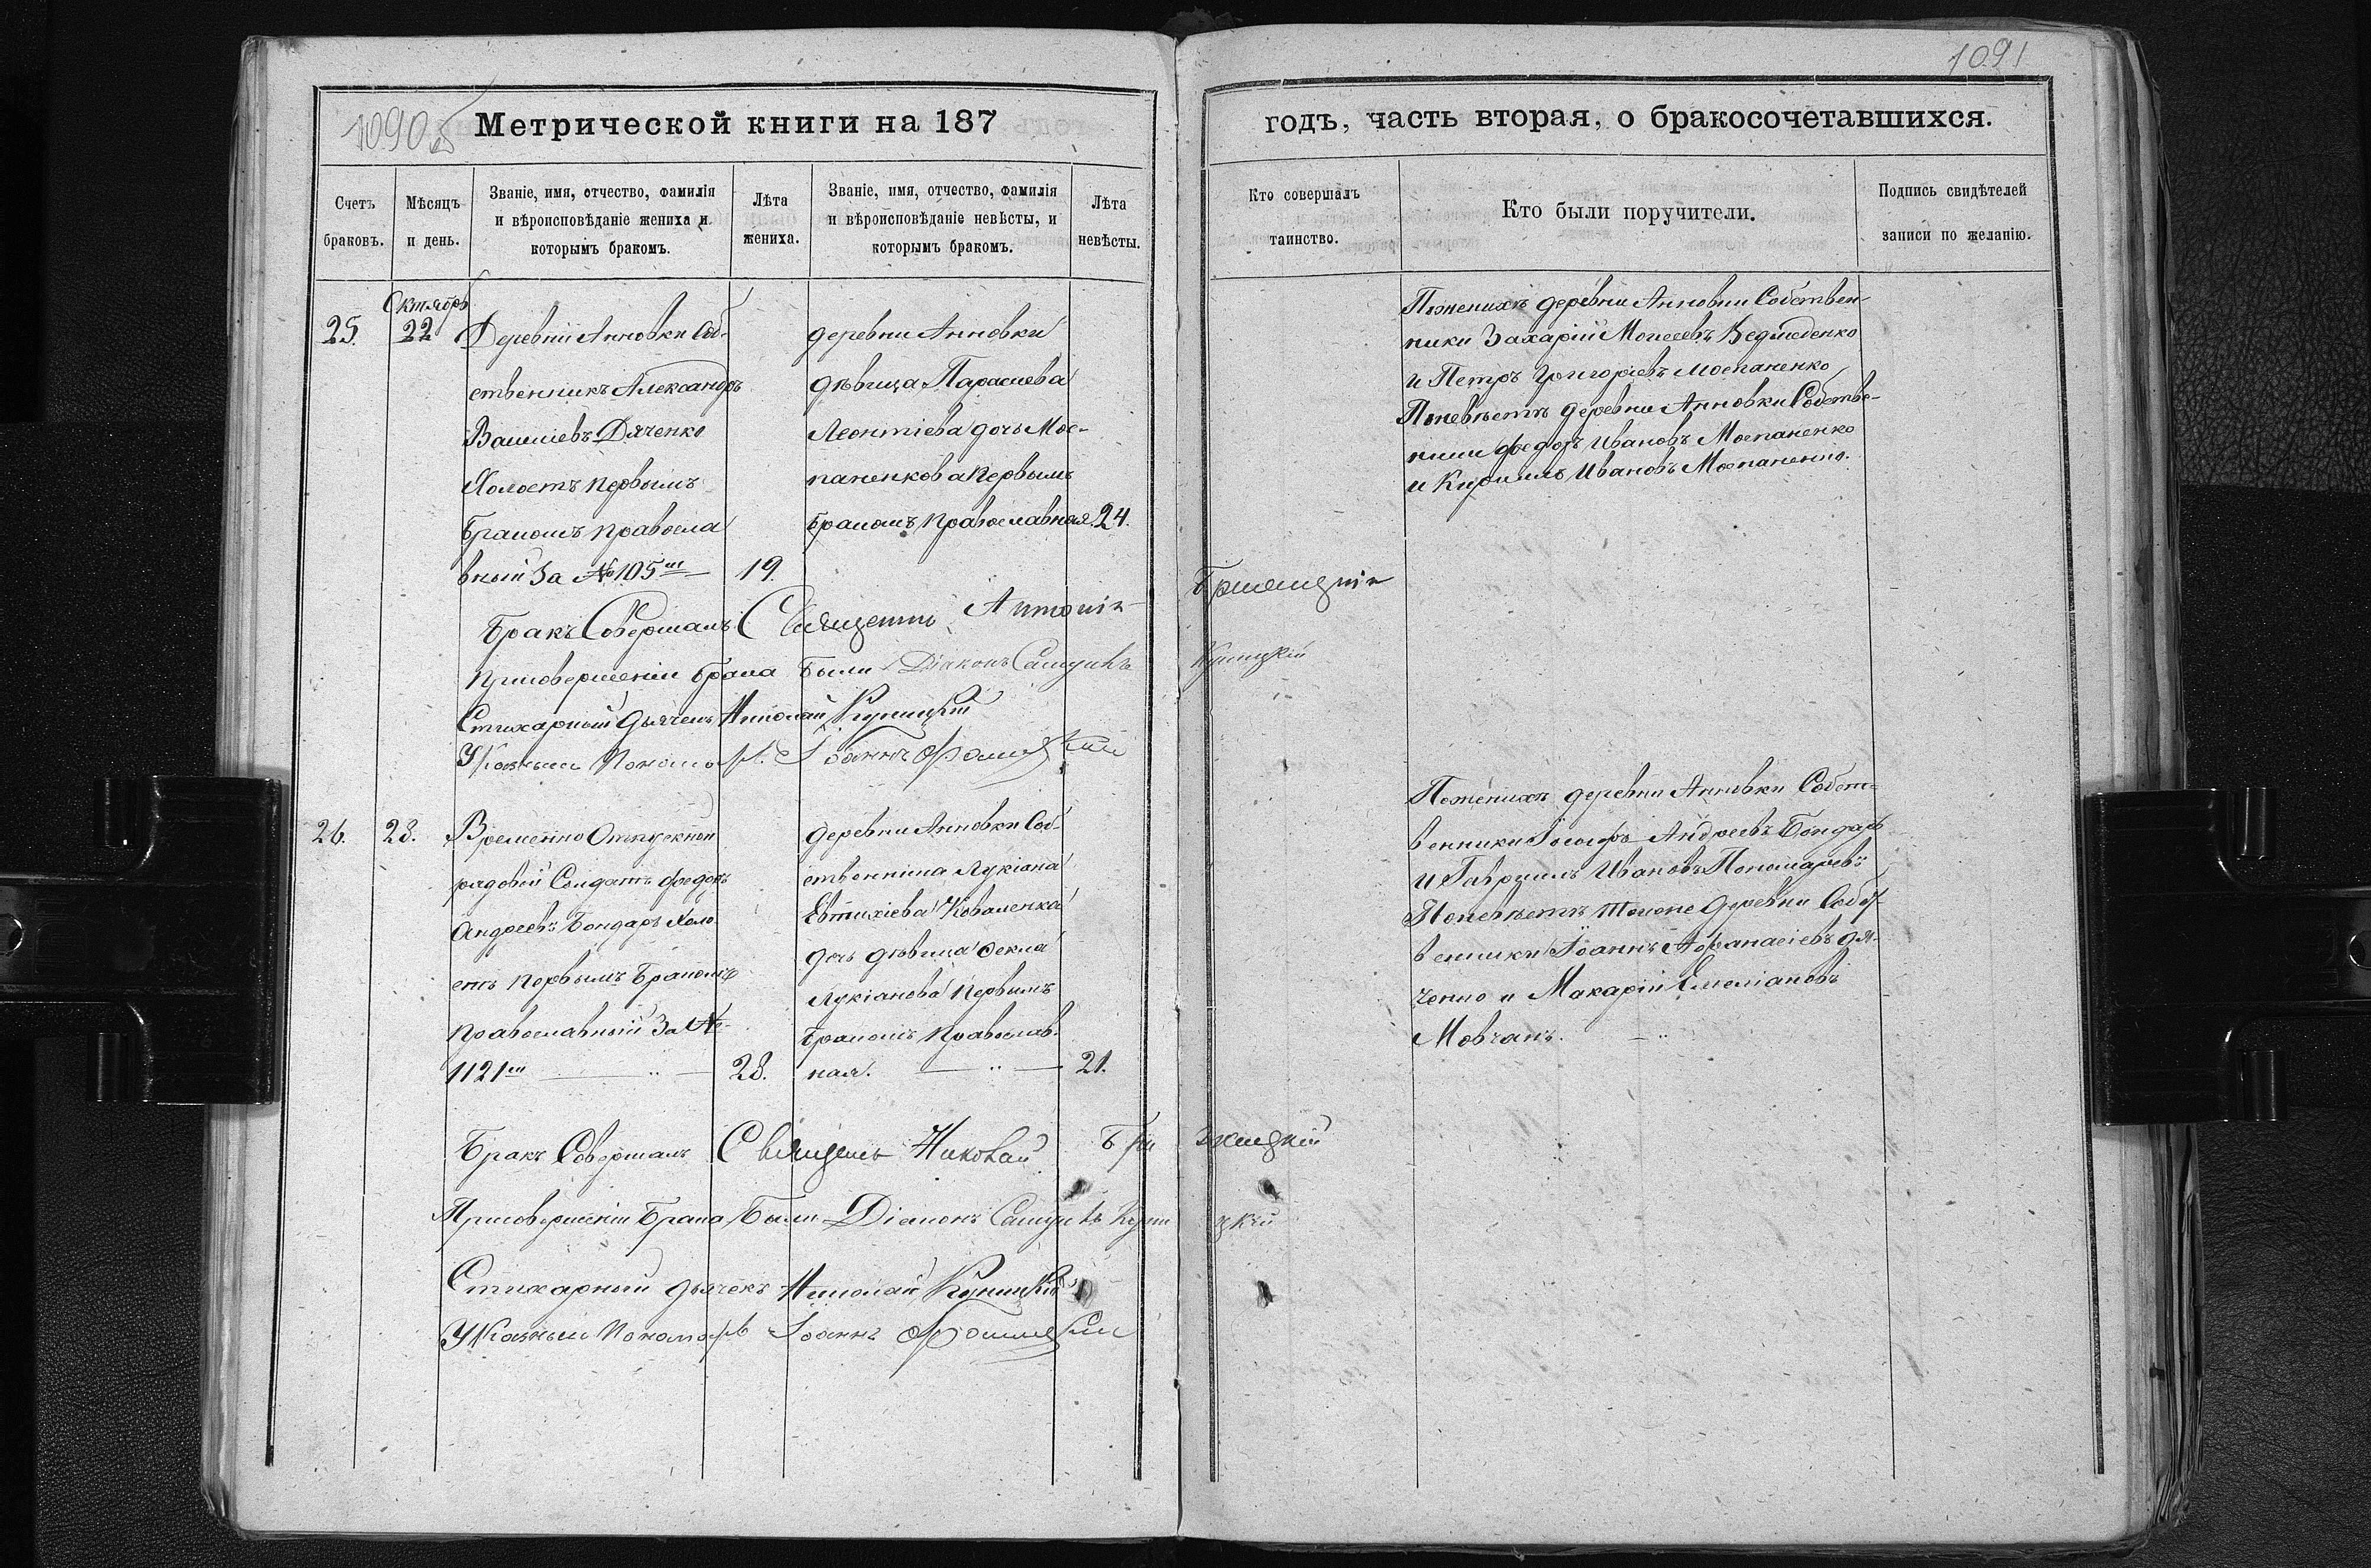 1090 об
1091
Метрической книги на 187
годъ, часть вторая, о бракосочетавшихся.
Счетъ браковъ.
Мѣсяцъ и день.
Званіе, имя, отчество, фамилія и вѣроисповѣданіе жениха и которымъ бракомъ.
Лѣта жениха.
Званіе, имя, отчество, фамилія и вѣроисповѣданіе невѣсты, и которымъ бракомъ.
Лѣта невѣсты.
Кто совершалъ таинство.
Кто были поручители.
Подпись свидѣтелей записи по желанію.
Октябрь
25.
22
Деревни Анновки Соб-
ственникъ Александръ
Василіевъ Дяченко
Холостъ первымъ
бракомъ правосла
вный За № 105ш
19.
деревни Анновки
дѣвица Параскева
Леонтіева дочь Мос-
паненкова первымъ
бракомъ православная
24.
По женихѣ деревни Анновки Собствен-
ники Захарій Моисеевъ Ведмеденко
и Петръ Григоріевъ Моспаненко
По невѣстѣ деревни Анновки Собстве-
ники Федоръ Ивановъ Моспаненко
и Кириллъ Ивановъ Моспаненко.
Бракъ Совершалъ Священникъ Антоній
При совершеніи брака были Діаконъ Самуилъ Куницкій
Стихарный дьячекъ Николай Куницкій
Указный Пономарь Іоаннъ
26.
28.
Временно Отпускной
рядовой Солдатъ Федоръ
Андреевъ Бондарь Холо
стъ первымъ бракомъ
православный За №
1121ш
28.
деревни Анновки Соб-
ственника Лукіана
Евтихіева Коваленка
дочь дѣвица Фекла
Лукіанова первымъ
бракомъ православ-
ная.
21.
По женихѣ деревни Анновки Собст-
венники Іосифъ Андреевъ Бондарь
и Гавріилъ Ивановъ Пономаревъ
По невѣстѣ тойже деревни Собст-
венники Іоаннъ Афанасіевъ Дя-
ченко и Макарій Емеліановъ
Мовчанъ.
Бракъ Совершалъ Священникъ Николай
При совершеніи брака были Діаконъ Самуилъ Куницкій
Стихарный дьячекъ Николай Куницкій
Указный Пономарь Іоаннъ